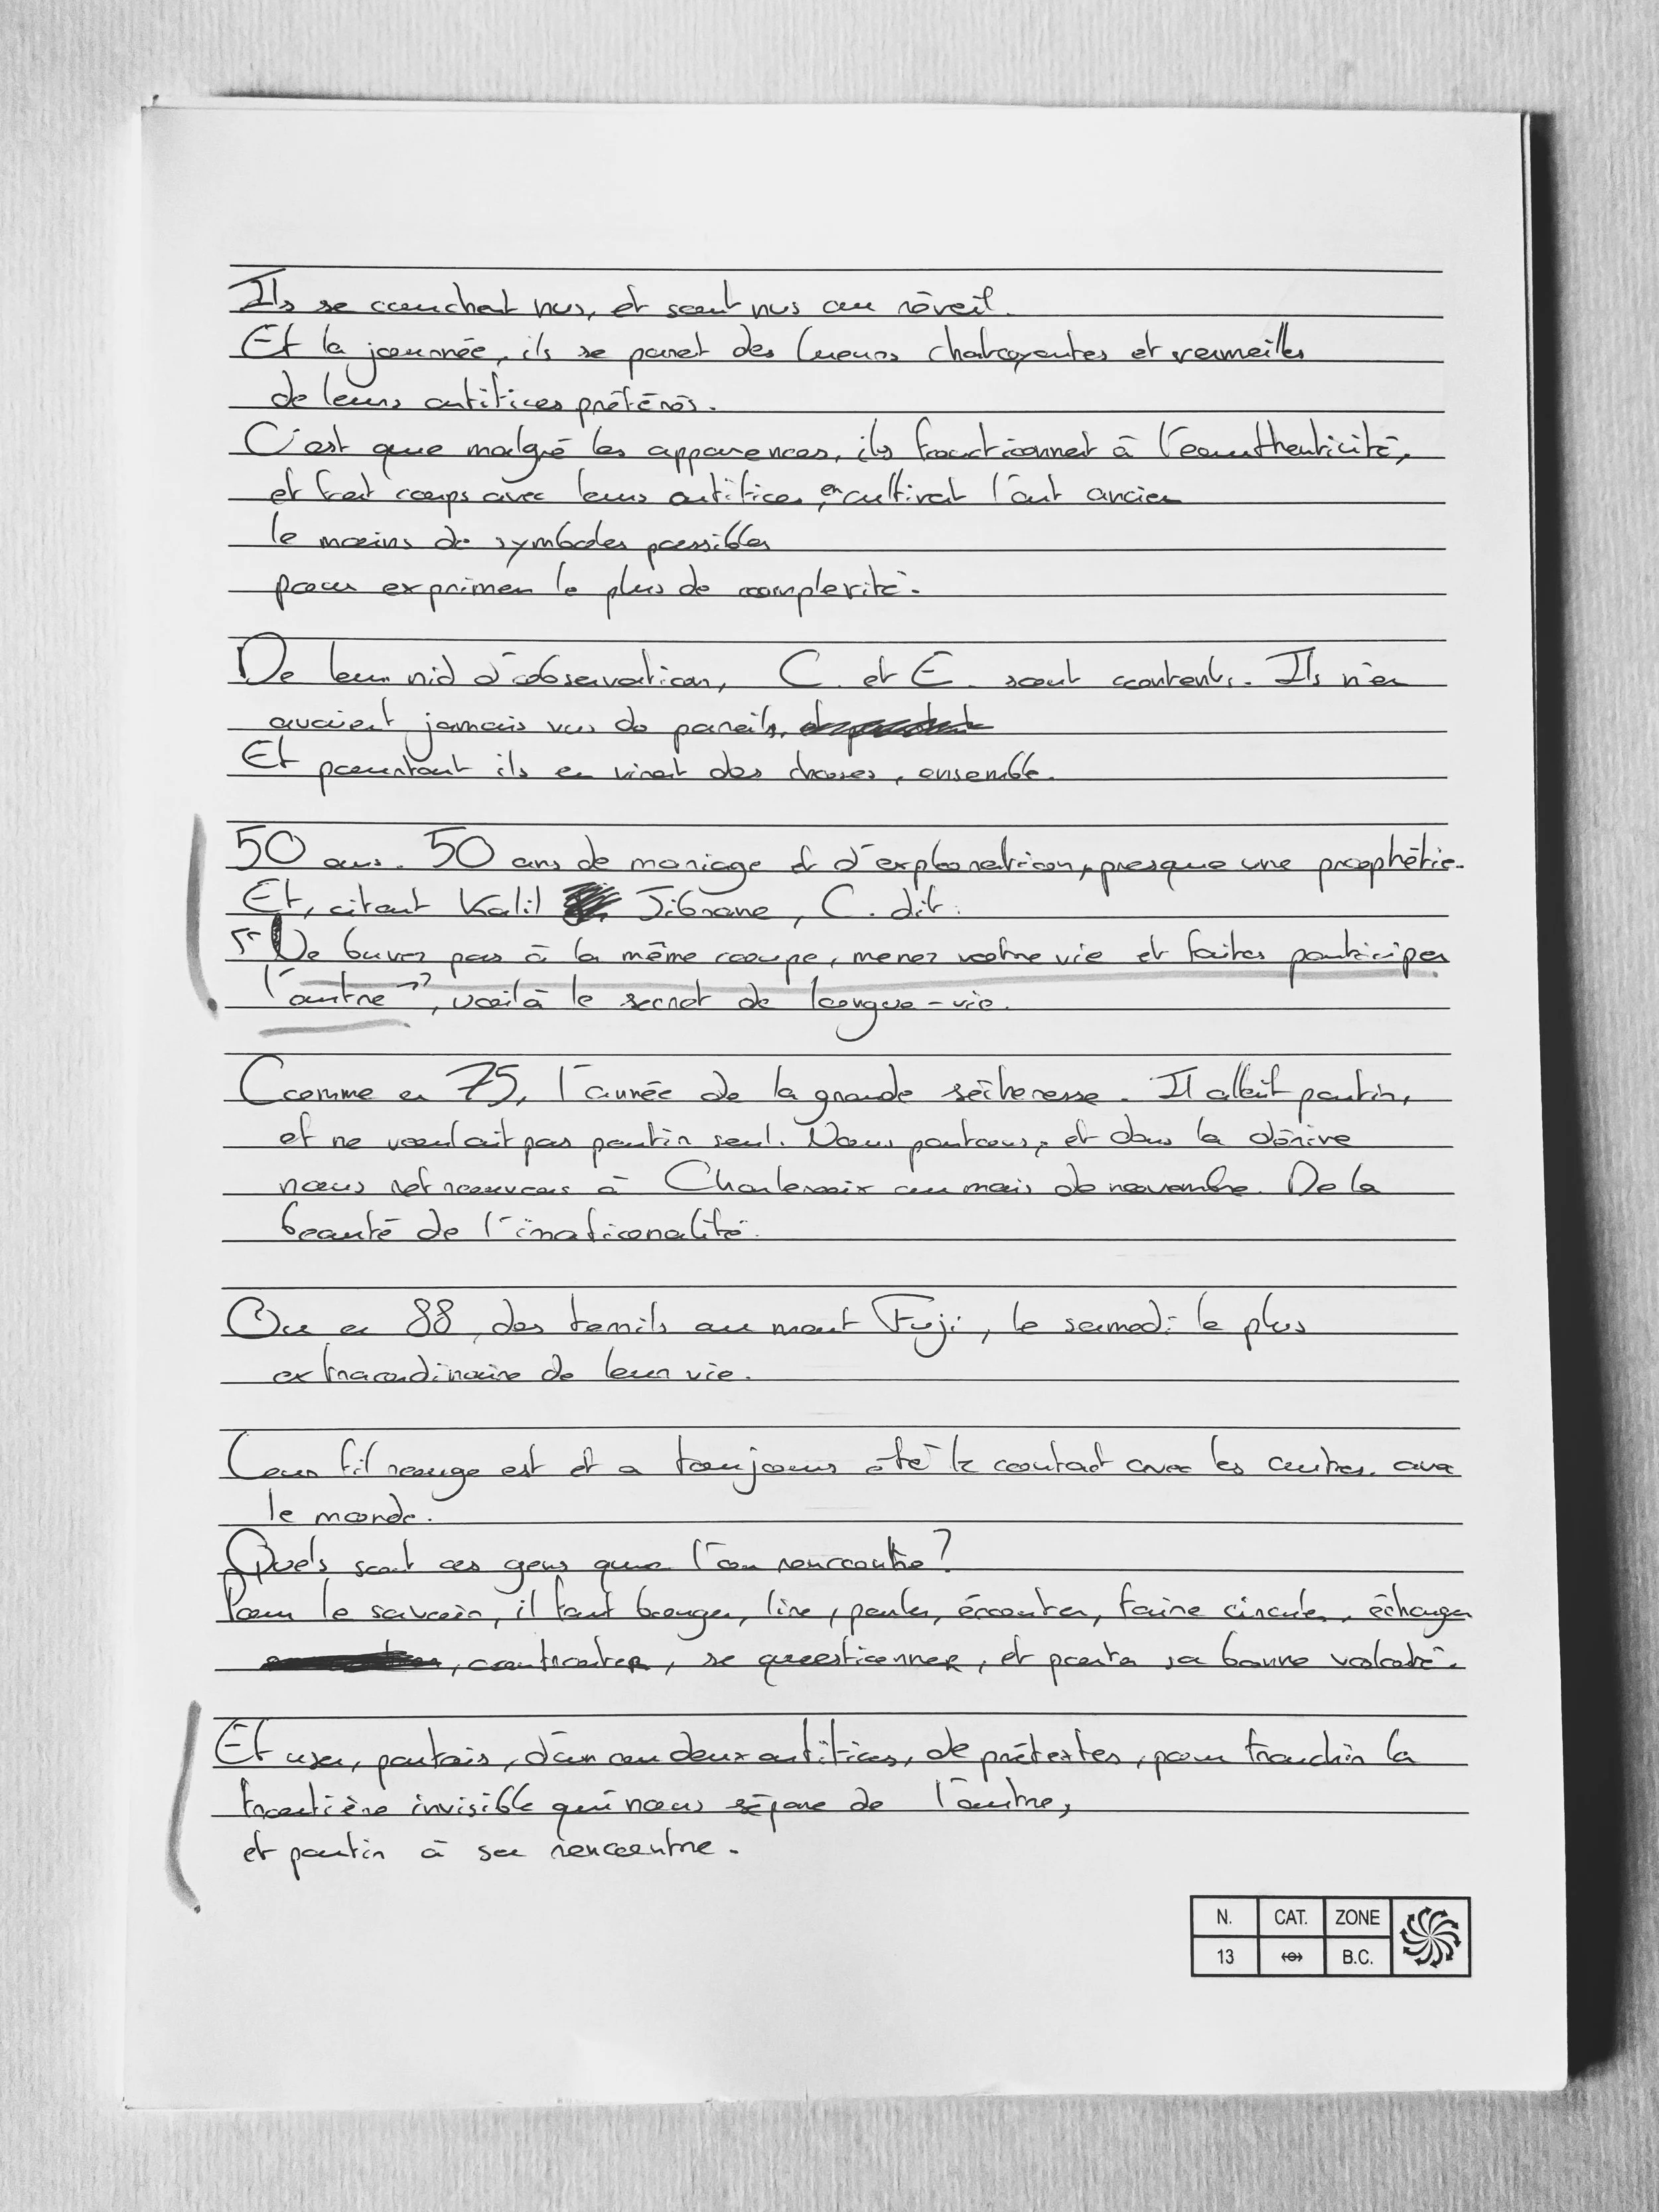 Ils se couchent nus, et sont nus au réveil.
Et la journée, ils se parent des lueurs chatoyantes et vermeilles
de leurs artifices préférés.
C'est que malgré les apparences, ils fonctionnent à l'authenticité,
et font corps avec leurs artifices, en cultivant l'art ancien
le moins de symboles possibles
pour exprimer le plus de complexité.
De leur nid d'observation, C. et E. sont contents. Ils n'en
avaient jamais vus de pareils.
Et pourtant ils en virent des choses, ensemble.
50 ans. 50 ans de mariage et d'exploration, presque une prophétie.
Et, citant Kalil Jibrane, C. dit :
"Ne buvez pas à la même coupe, menez votre vie et faites participer
l'autre", voilà le secret de longue-vie.
Comme en 75, l'année de la grande sécheresse. Il allait partir,
et ne voulait pas partir seul. Nous partons, et dans la dérive
nous retrouvons à Charlevoix au mois de novembre. De la
beauté de l'irrationalité.
Ou en 88, des au mont Fuji, le samedi le plus
extraordinaire de leur vie.
Leur fil rouge est et a toujours été le contact avec les autres. avec
le monde.
Quels sont ces gens que l'on rencontre ?
Pour le savoir, il faut bouger, lire, parler, écouter, faire circuler, échanger
, confronter, se questionner, et porter sa bonne volonté.
Et user, parfois, d'un ou deux artifices, de prétextes, pour franchir la
frontière invisible qui nous sépare de l'autre,
et partir à sa rencontre.
N. CAT. ZONE
13 B.C.